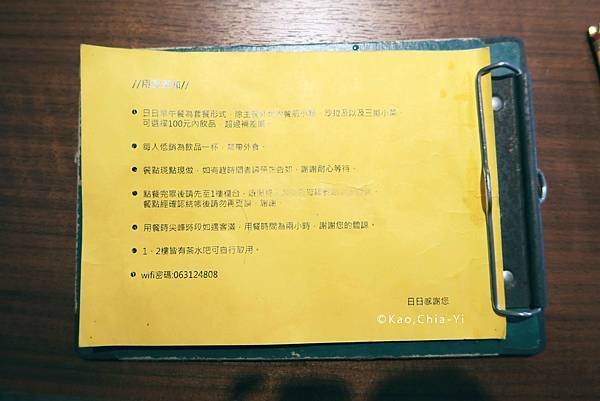 //用餐須知//
日日早午餐為套餐形式，除主餐外附餐前小點、沙拉及以及三樣小菜。
可選擇100元內飲品，超過補差額。
每人低銷為飲品一杯，禁帶外食。
餐點現點現做，如有趕時間者請事先告知，謝謝耐心等待。
點餐完畢後請先至1樓櫃台
餐點經確認結帳後請勿再更改，謝謝。
用餐時尖峰時段如遇客滿，用餐時間為兩小時，謝謝您的體諒。
1、2樓皆有茶水吧可自行取用。
wifi密碼:063124808
日日感謝您
©Kao,Chia-Yi